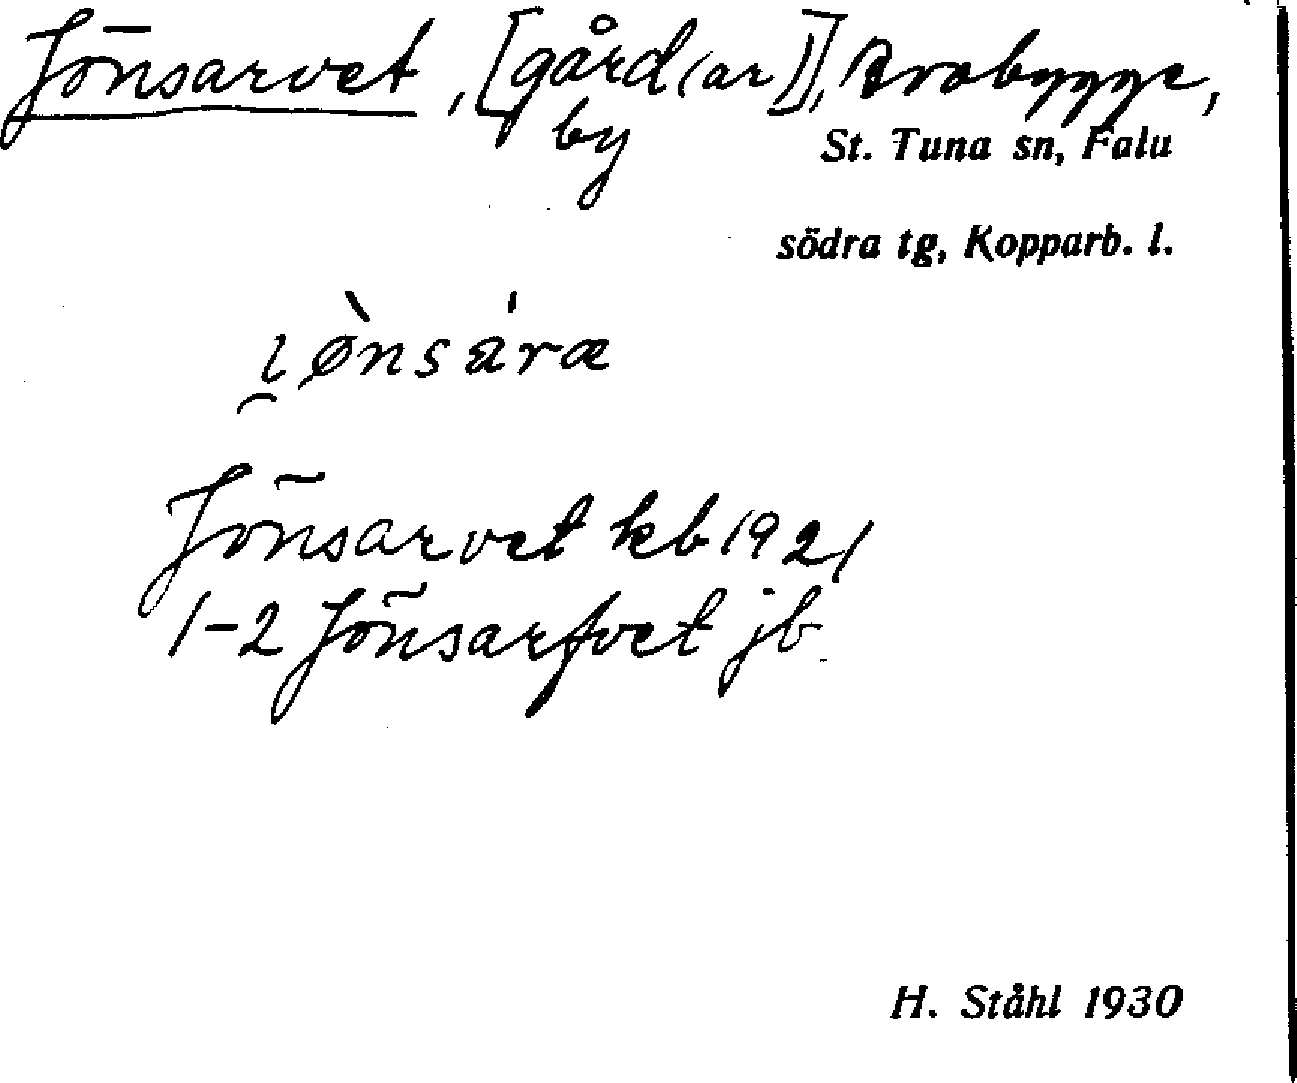 Jönsarvet, [gård(ar)], Ovabygge,
by
St. Tuna sn, Falu
södra tg, Kopparb. l.
i̯ø̀nsáræ
Jönsarvet kb 1921
1-2 Jönsarfvet jb.
H. Ståhl 1930